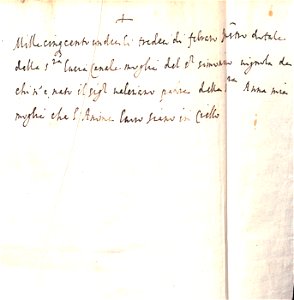 +
Mille cinqcento undeci li tredeci di febraro dotale
della S.ra Lucia Canale moglie del S.r simone vignola da
chi n'è nato il sig.r valeriano padre della S.ra Anna mia
moglie che l'Anime loro siano in Cielo